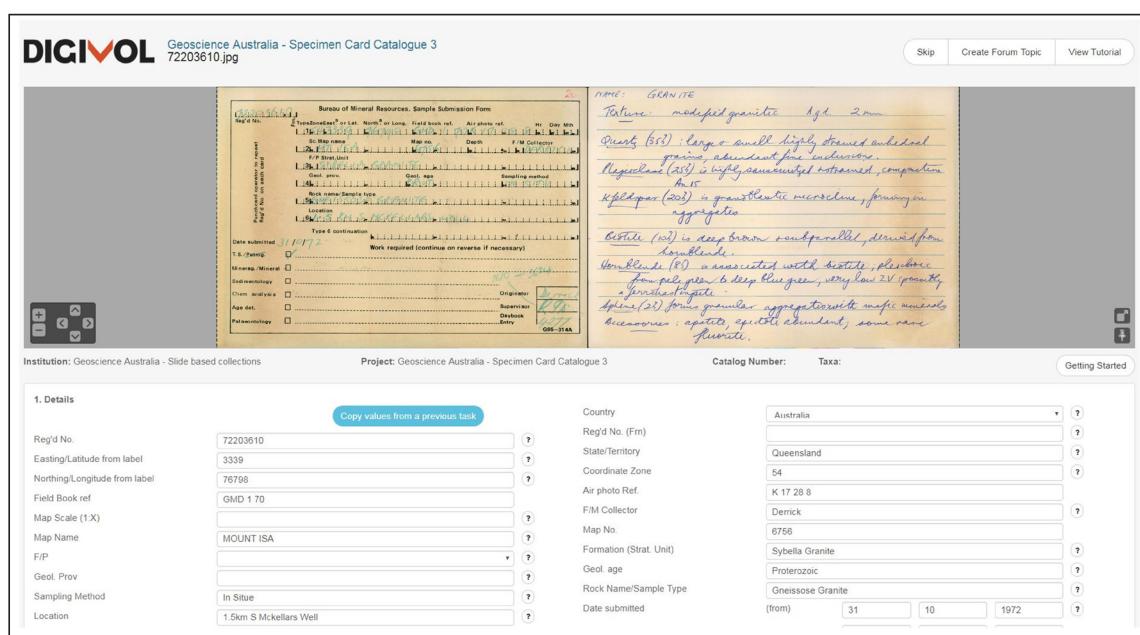 DIGIVOL
Geoscience Australia - Specimen Card Catalogue 3
72203610.jpg
Skip
Create Forum Topic
View Tutorial
Bureau of Mineral Resources. Sample Submission Form
Reg'd No.
Type Zone East or Lat. North or Long. Field book ref. Air photo ref. Hr Day Mth
Sc. Map name Map no. Depth F/M Collector
F/P Strat. Unit
Geol. prov. Geol. age Sampling method
Rock name/Sample type
Location
Type 6 continuation
Punchcard operator to repeat
Reg'd No. on each card
Date submitted 31/10/72
Work required (continue on reverse if necessary)
T.S./Petrog.
Minerag./Mineral
Sedimentology
Chem analysis
Age det.
Palaeontology
Originator
Supervisor
Daybook
Entry
G95-314A
NAME: GRANITE
Texture: modified granitic Agd. 2mm
Quartz (35%): large & small highly strained anhedral
grains, abundant fine inclusions.
Plagioclase (25%) is highly sericitized & strained, composition
An 15
K feldspar (20%) is granoblastic microcline, forming in
aggregates
Biotite (10%) is deep brown & subparallel, derived from
hornblende.
Hornblende (8%) is associated with biotite, pleochroic
from pale green to deep blue green, very low 2V, possibly
a ferrohastingsite.
Sphene (2%) forms granular aggregates with mafic minerals
Accessories: apatite, epidote abundant, some rare
fluorite.
Institution: Geoscience Australia - Slide based collections
Project: Geoscience Australia - Specimen Card Catalogue 3
Catalog Number:
Taxa:
Getting Started
1. Details
Copy values from a previous task
Reg'd No. 72203610 ?
Easting/Latitude from label 3339 ?
Northing/Longitude from label 76798 ?
Field Book ref GMD 1 70
Map Scale (1:X) ?
Map Name MOUNT ISA ?
F/P ?
Geol. Prov ?
Sampling Method In Situe ?
Location 1.5km S Mckellars Well ?
Country Australia ?
Reg'd No. (Frn) ?
State/Territory Queensland ?
Coordinate Zone 54 ?
Air photo Ref. K 17 28 8
F/M Collector Derrick ?
Map No. 6756
Formation (Strat. Unit) Sybella Granite ?
Geol. age Proterozoic ?
Rock Name/Sample Type Gneissose Granite ?
Date submitted (from) 31 10 1972 ?